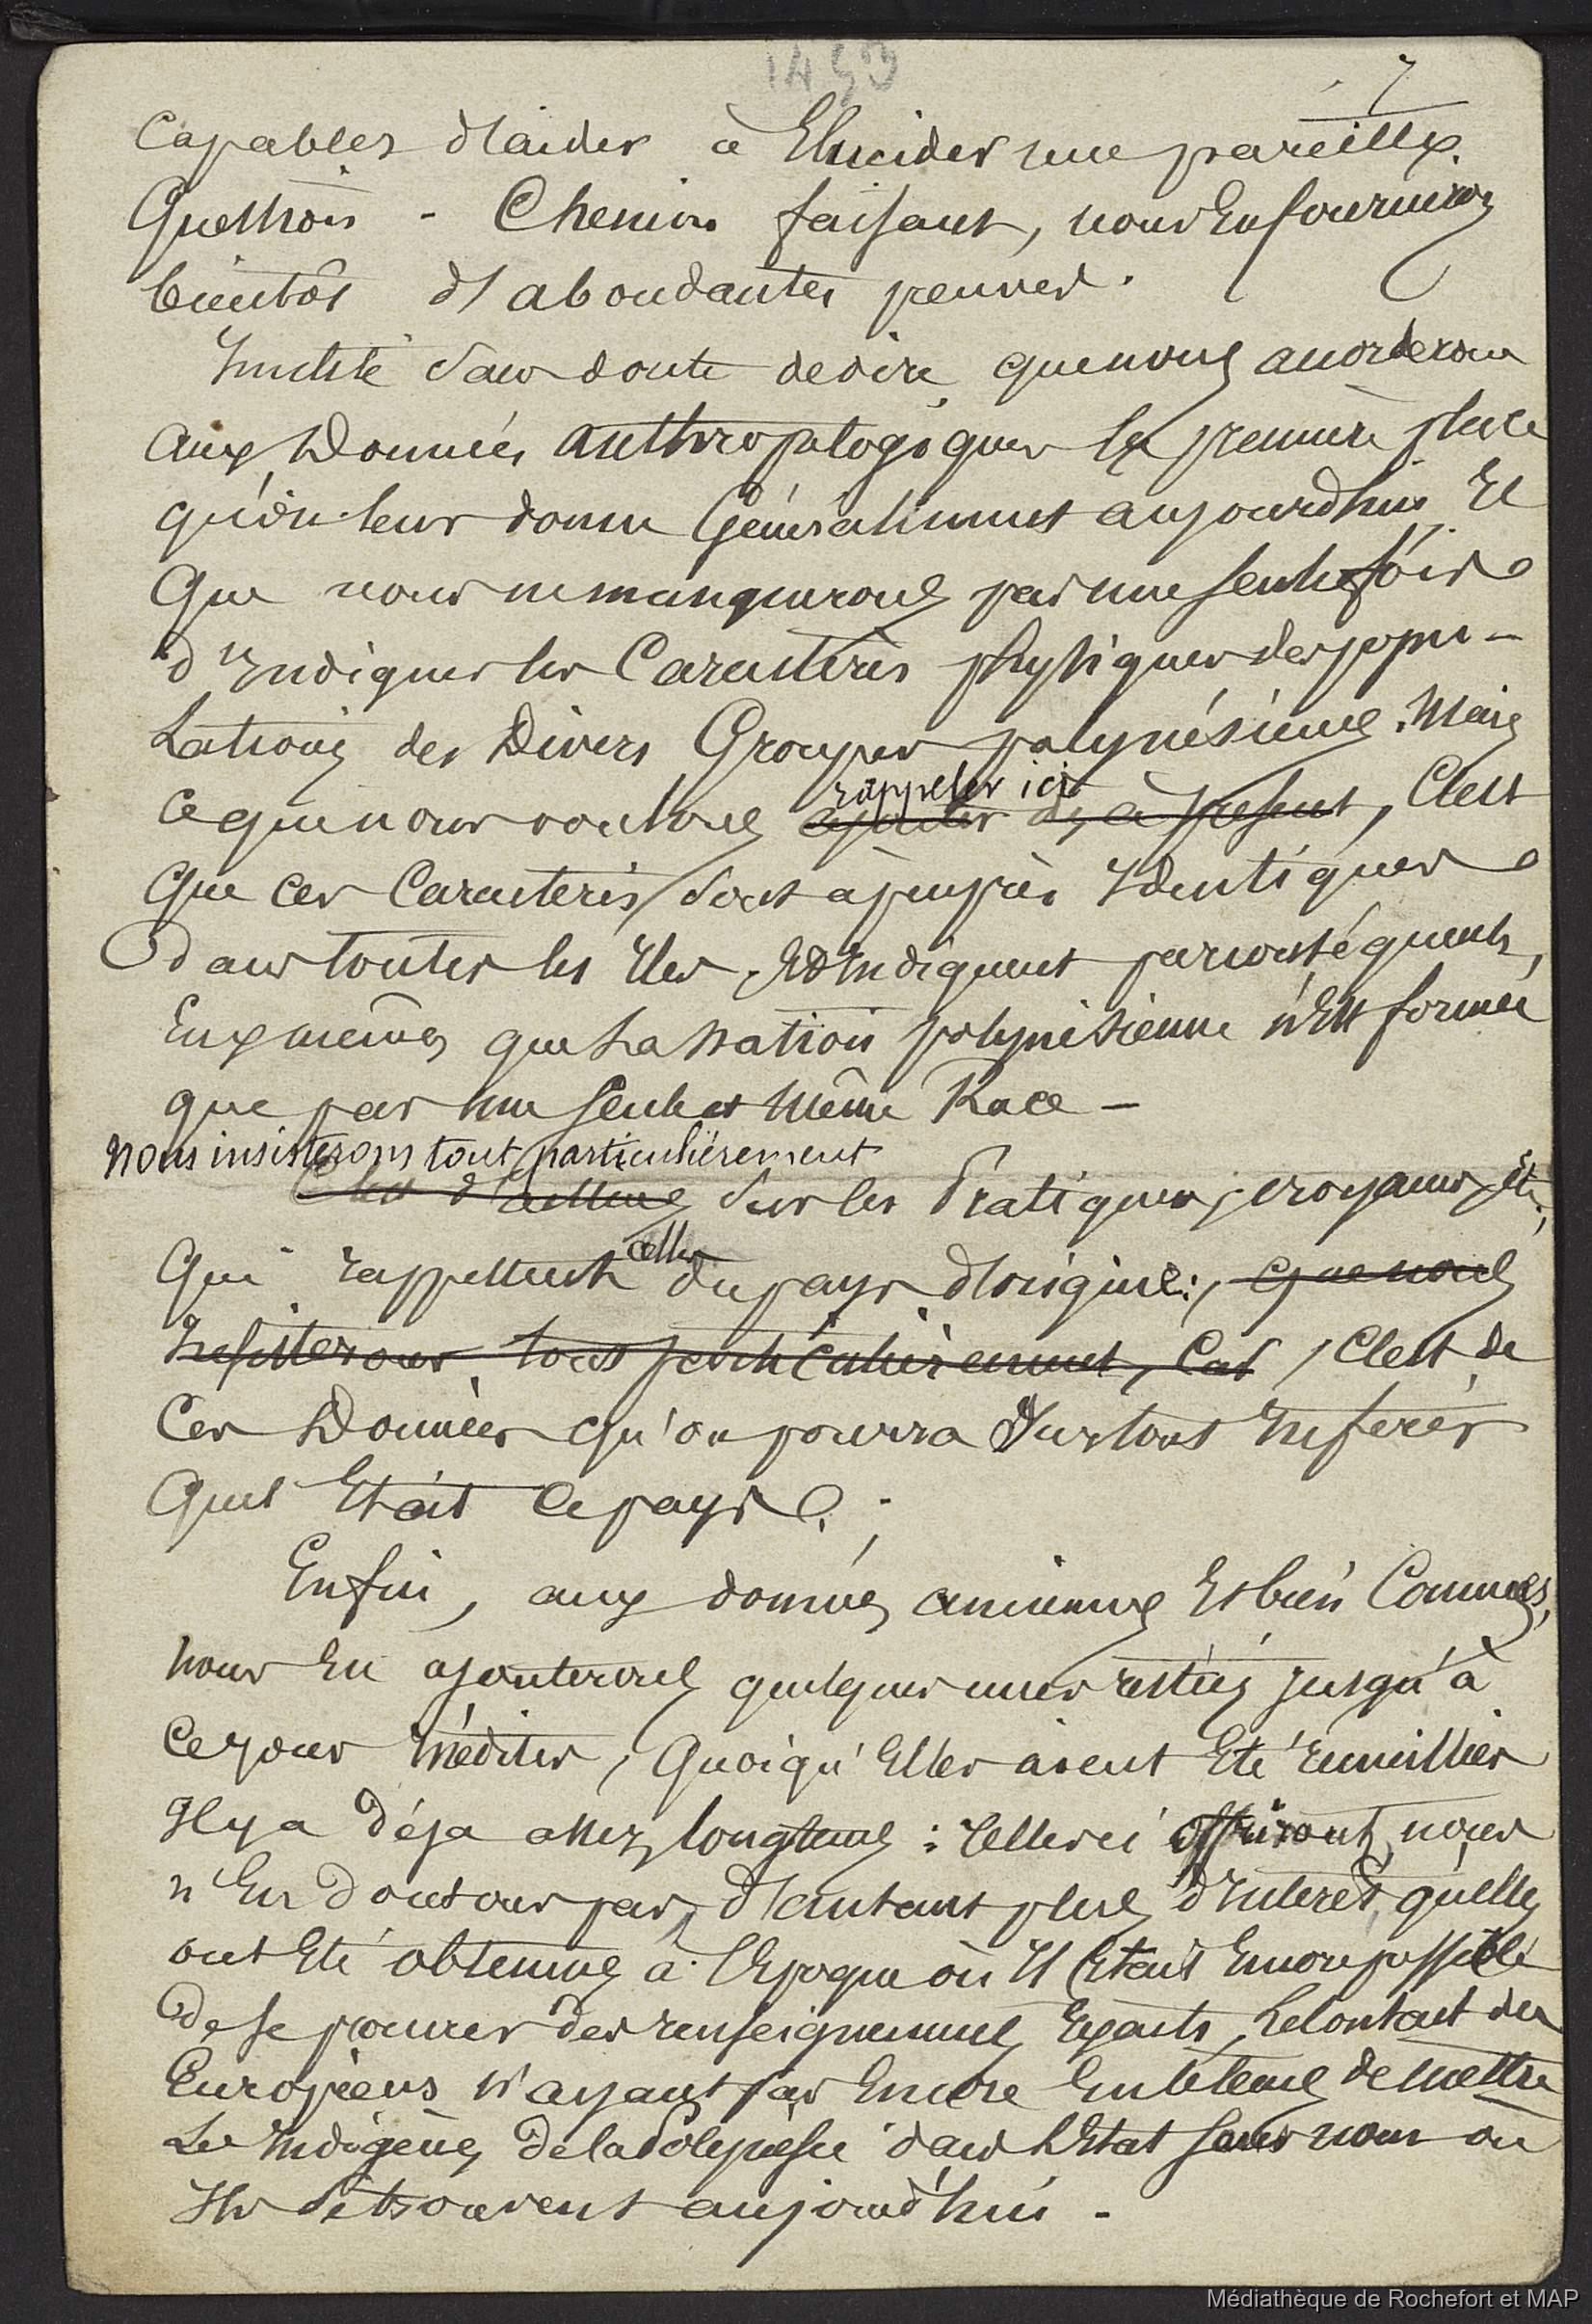 1450
7
Capables d'aider à Elucider une pareille
Question - Chemin faisant, nous En fournirons
bientôt d'abondantes preuves.
Inutile Sans doute de dire que nous accorderons
aux Données anthropologiques la première place
qu'on leur donne Généralement aujourd'hui Et
Que nous ne manquerons pas une seule fois
d'Indiquer les Caractères physiques des popu-
Lations des Divers Groupes polynésiens. Mais
rappeler ici
ce que nous voulons ajouter dès à présent, C'est
Que ces Caractères Sont à peu près Identiques
dans toutes les Iles, Et Indiquent par conséquents,
Eux mêmes que La Nation polynésienne n'Est formée
que par Une seule et Même Race -
Nous insisterons tout particulièrement
C'est d'ailleurs Sur les Pratiques, croyances, Etc;
celles
Qui rappellent du pays d'origine; que nous
Insisterons tout particulièrement, Car, C'est de
Ces Données qu'on pourra Surtout Inferer
Quel Etait ce pays.;
Enfin, aux données anciennes Et bien Connues,
nous En ajouterons quelques unes restées jusqu'à
ce jour Inédites, Quoiqu'Elles aient Eté recueillies
Il y a Déja assez longtems : Celles ci offriront, nous
n'En Doutons pas, d'autant plus d'Interet, qu'elles
ont Eté obtenues à l'Epoque où Il Etait Encore possible
De se procurer des renseignemens Exacts, Le Contact des
Européens n'ayant pas Encore Eu le tems de mettre
Les Indigènes de la Polynésie dans l'Etat sans nom où
Ils se trouvent aujourd'hui -
Médiathèque de Rochefort et MAP